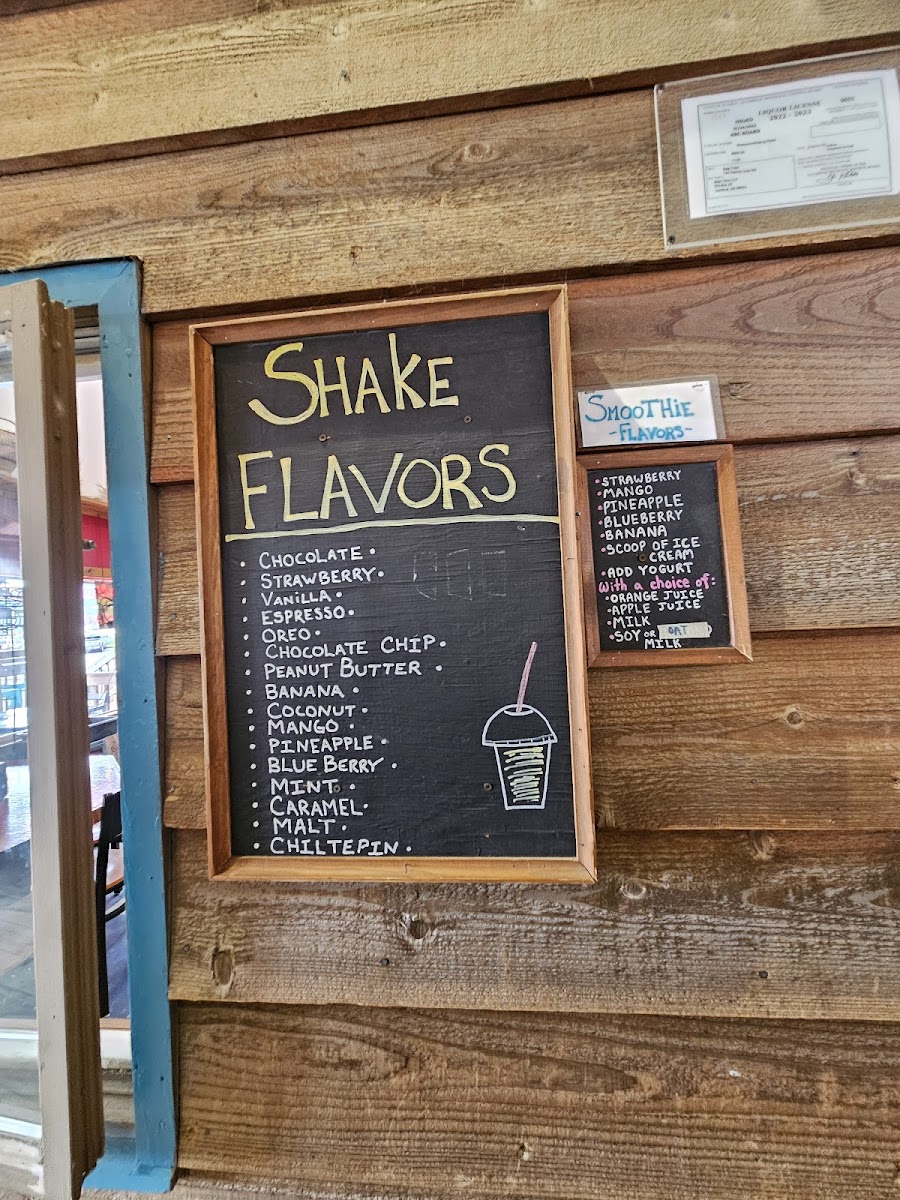 LIQUOR LICENSE
2022 - 2023
ABC BOARD
SHAKE
FLAVORS
• CHOCOLATE •
• STRAWBERRY •
• VANiLLA •
• ESPRESSO •
• OREO •
• CHOCOLATE CHIP •
• PEANUT BUTTER •
• BANANA •
• COCONUT •
• MANGO •
• PINEAPPLE •
• BLUE BERRY •
• MINT •
• CARAMEL •
• MALT •
• CHILTEPIN •
SMOOTHiE
~FLAVORS~
• STRAWBERRY
• MANGO
• PINEAPPLE
• BLUEBERRY
• BANANA
• SCOOP OF ICE
CREAM
• ADD YOGURT
with a choice of:
• ORANGE JUICE
• APPLE JUICE
• MILK
• SOY OR OAT
MILK